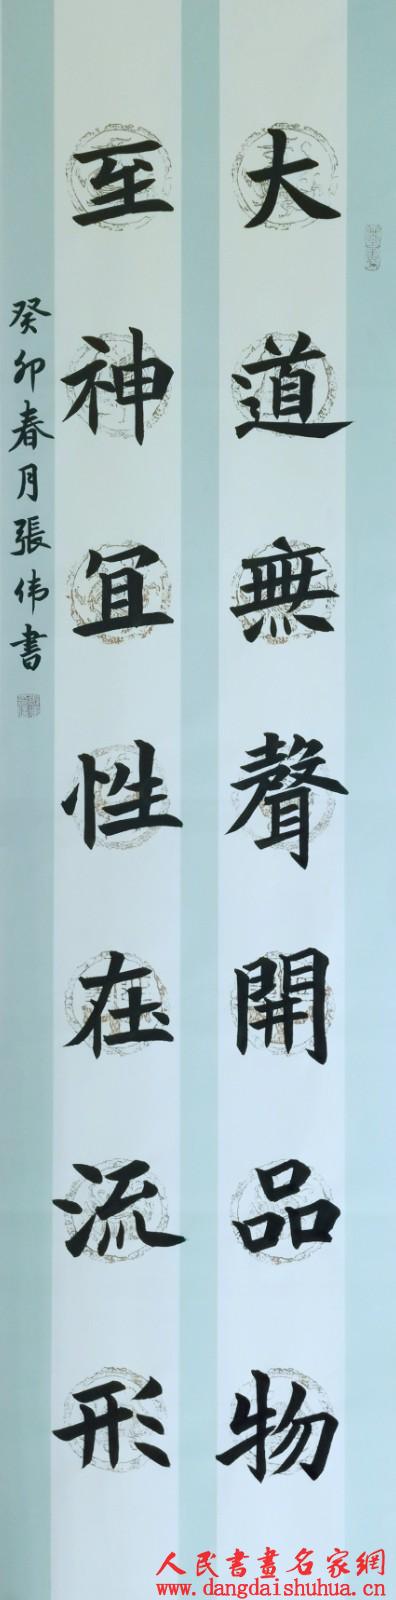 大道無聲開品物
至神冝性在流形
癸卯春月張伟書
人民書畫名家網
www.dangdaishuhua.cn